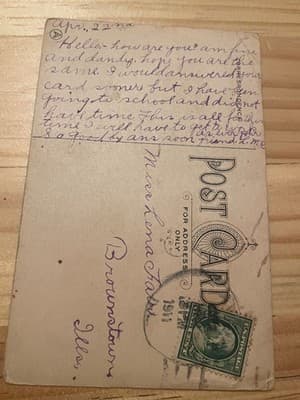 Apr, 22nd
Hello - how are you? am fine
and dandy. hope you are the
same I would answered your
card sooner but I have been
going to school and did not
have time This is all for this
time I will have to get
Good by ans soon friend
POST CARD
FOR ADDRESS
ONLY
Miss Lena
Brownstown
Ills.
1911